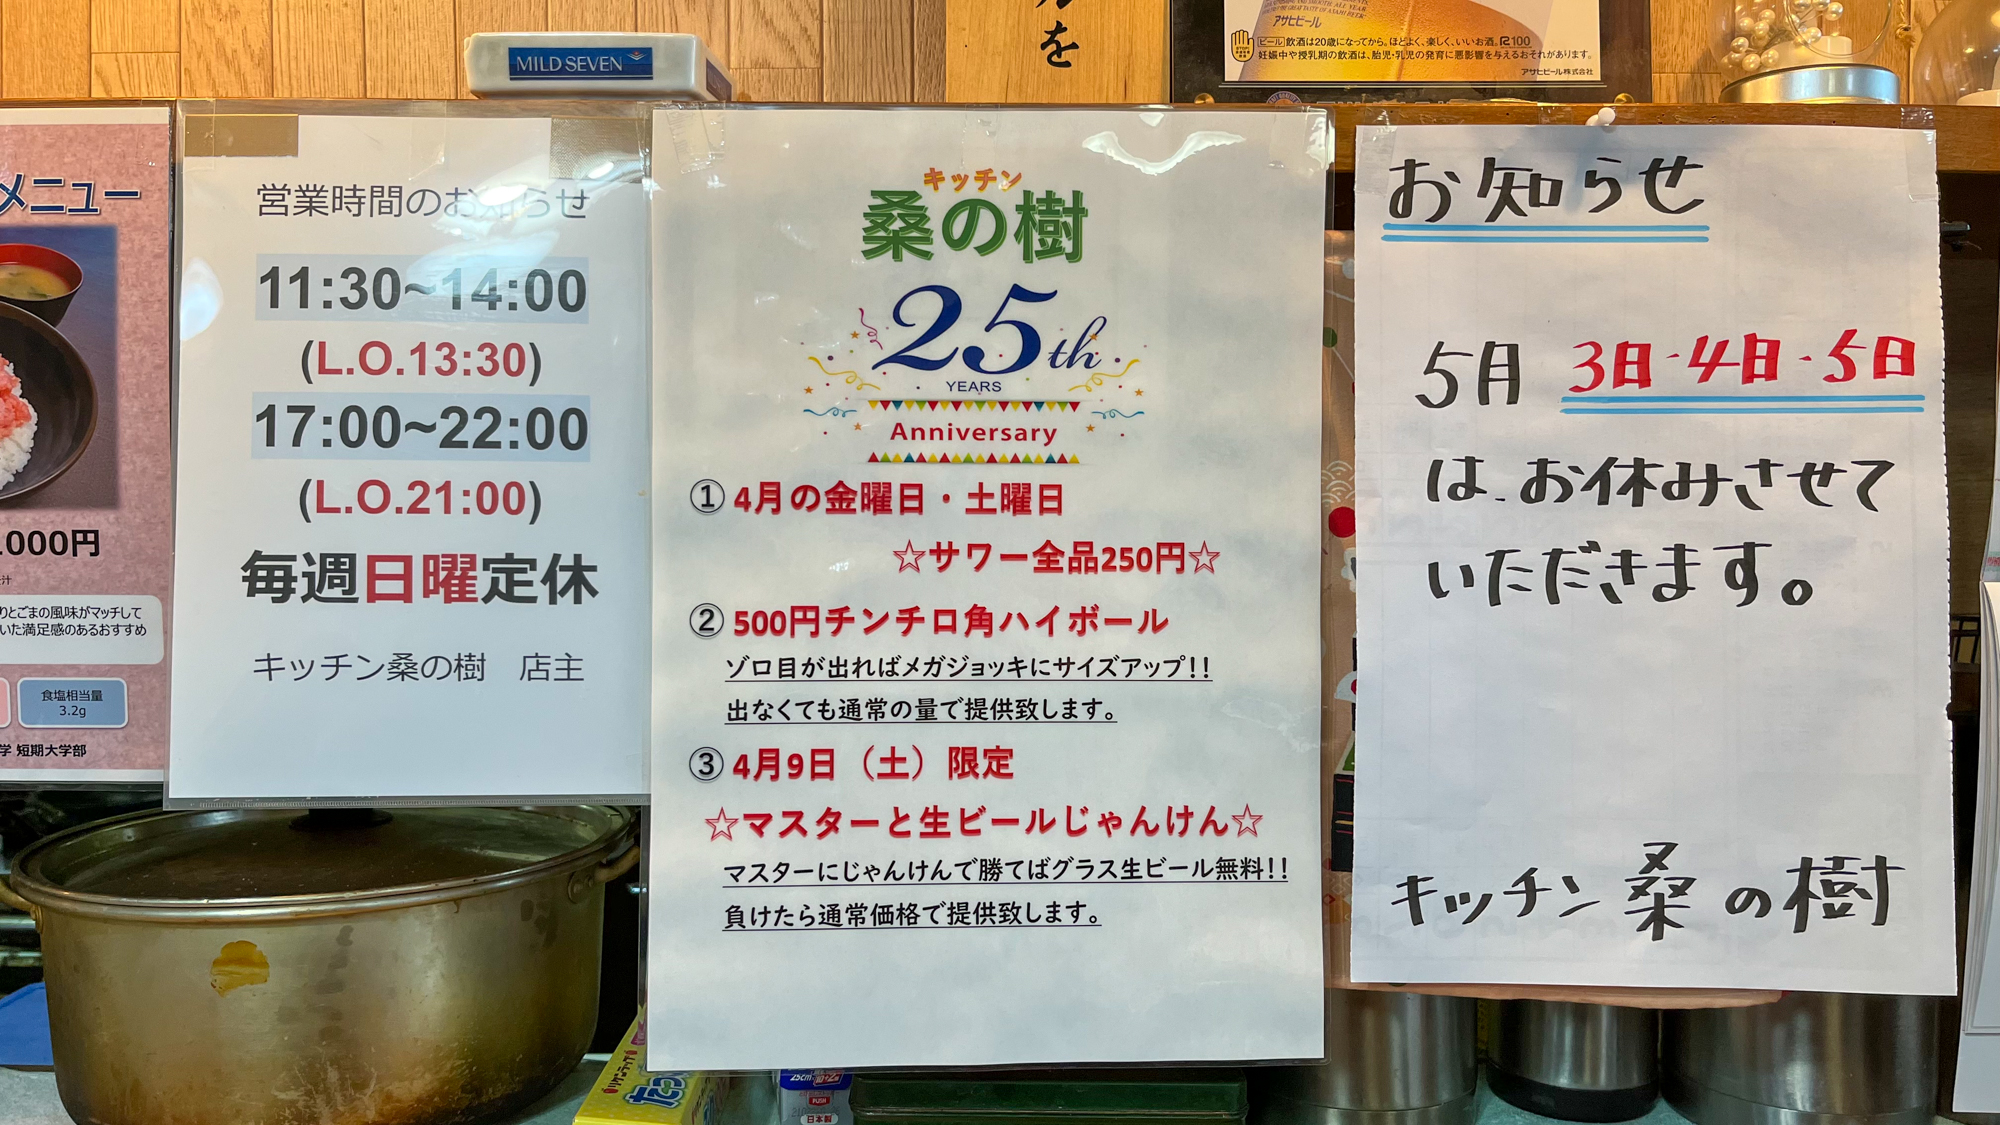 ルを
MILD SEVEN
アサヒビール
ビール 飲酒は20歳になってから。ほどよく、楽しく、いいお酒。 R100
妊娠中や授乳期の飲酒は、胎児・乳児の発育に悪影響を与えるおそれがあります。
アサヒビール株式会社
メニュー
000円
りとごまの風味がマッチして
いた満足感のあるおすすめ
食塩相当量
3.2g
学 短期大学部
営業時間のお知らせ
11:30~14:00
(L.O.13:30)
17:00~22:00
(L.O.21:00)
毎週日曜定休
キッチン桑の樹 店主
キッチン
桑の樹
25th
YEARS
Anniversary
① 4月の金曜日・土曜日
☆サワー全品250円☆
② 500円チンチロ角ハイボール
ゾロ目が出ればメガジョッキにサイズアップ!!
出なくても通常の量で提供致します。
③ 4月9日（土）限定
☆マスターと生ビールじゃんけん☆
マスターにじゃんけんで勝てばグラス生ビール無料!!
負けたら通常価格で提供致します。
お知らせ
5月 3日・4日・5日
は、お休みさせて
いただきます。
キッチン 桑の樹
25cm
PUSH
日本白